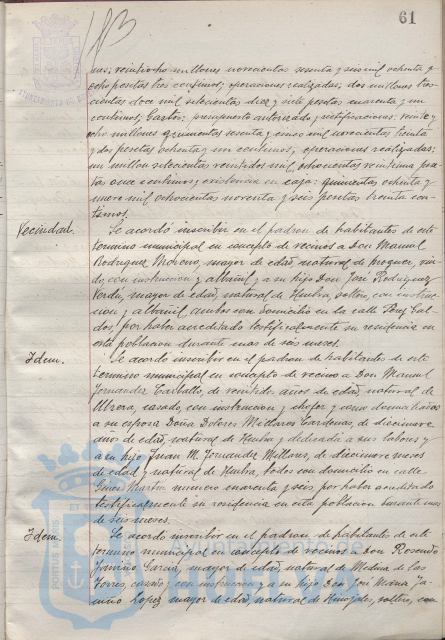 61
183
AYUNTAMIENTO DE
nes; veintiocho millones novecientas sesenta y seis mil ochenta y
ocho pesetas tres centimos; operaciones realizadas; dos millones tres-
cientas doce mil setecientas diez y siete pesetas cuarenta y un
centimos; Gastos: presupuesto autorizado y rectificaciones: veinte y
ocho millones quinientas sesenta y cinco mil novecientas treinta
y dos pesetas ochenta y un centimos; operaciones realizadas:
un millon setecientas veintidos mil, ochocientas veintiuna pese-
tas once centimos; existencia en caja: quinientas ochenta y
nueve mil ochocientas noventa y seis pesetas treinta cen-
timos.
Vecindad.
Se acordó inscribir en el padron de habitantes de este
termino municipal en concepto de vecinos a Don Manuel
Rodriguez Moreno, mayor de edad, natural de Moguer, viu-
do, con instruccion y albañil y a su hijo Don José Rodriguez
Verdú, mayor de edad, natural de Huelva, soltero, con instruc-
cion y albañil ambos con domicilio en la calle Perez Gal-
dos, por haber acreditado testificalmente su residencia en
esta poblacion durante mas de seis meses.
Idem.
Se acordó inscribir en el padron de habitantes de este
termino municipal en concepto de vecino a Don Manuel
Fernandez Carballo, de veintidos años de edad, natural de
Utrera, casado, con instruccion y chofer y como domiciliados
a su esposa Doña Dolores Mellares Cardenas de diecinueve
años de edad, natural de Huelva y dedicada a sus labores y
a su hijo Juan M. Fernandez Mellares, de diecinueve meses
de edad y natural de Huelva, todos con domicilio en calle
Ginés Martin numero cuarenta y seis por haber acreditado
testificalmente su residencia en esta poblacion durante mas
de seis meses.
Idem.
Se acordó inscribir en el padron de habitantes de este
termino municipal en concepto de vecinos a Don Rosendo
Jamiño Garcia, mayor de edad, natural de Medina de las
Torres, casado, con instruccion y a su hijo Don José Maria Ja-
miño Lopez mayor de edad, natural de Hinojales, soltero, con
PORTUS MARIS
Ayuntamiento de